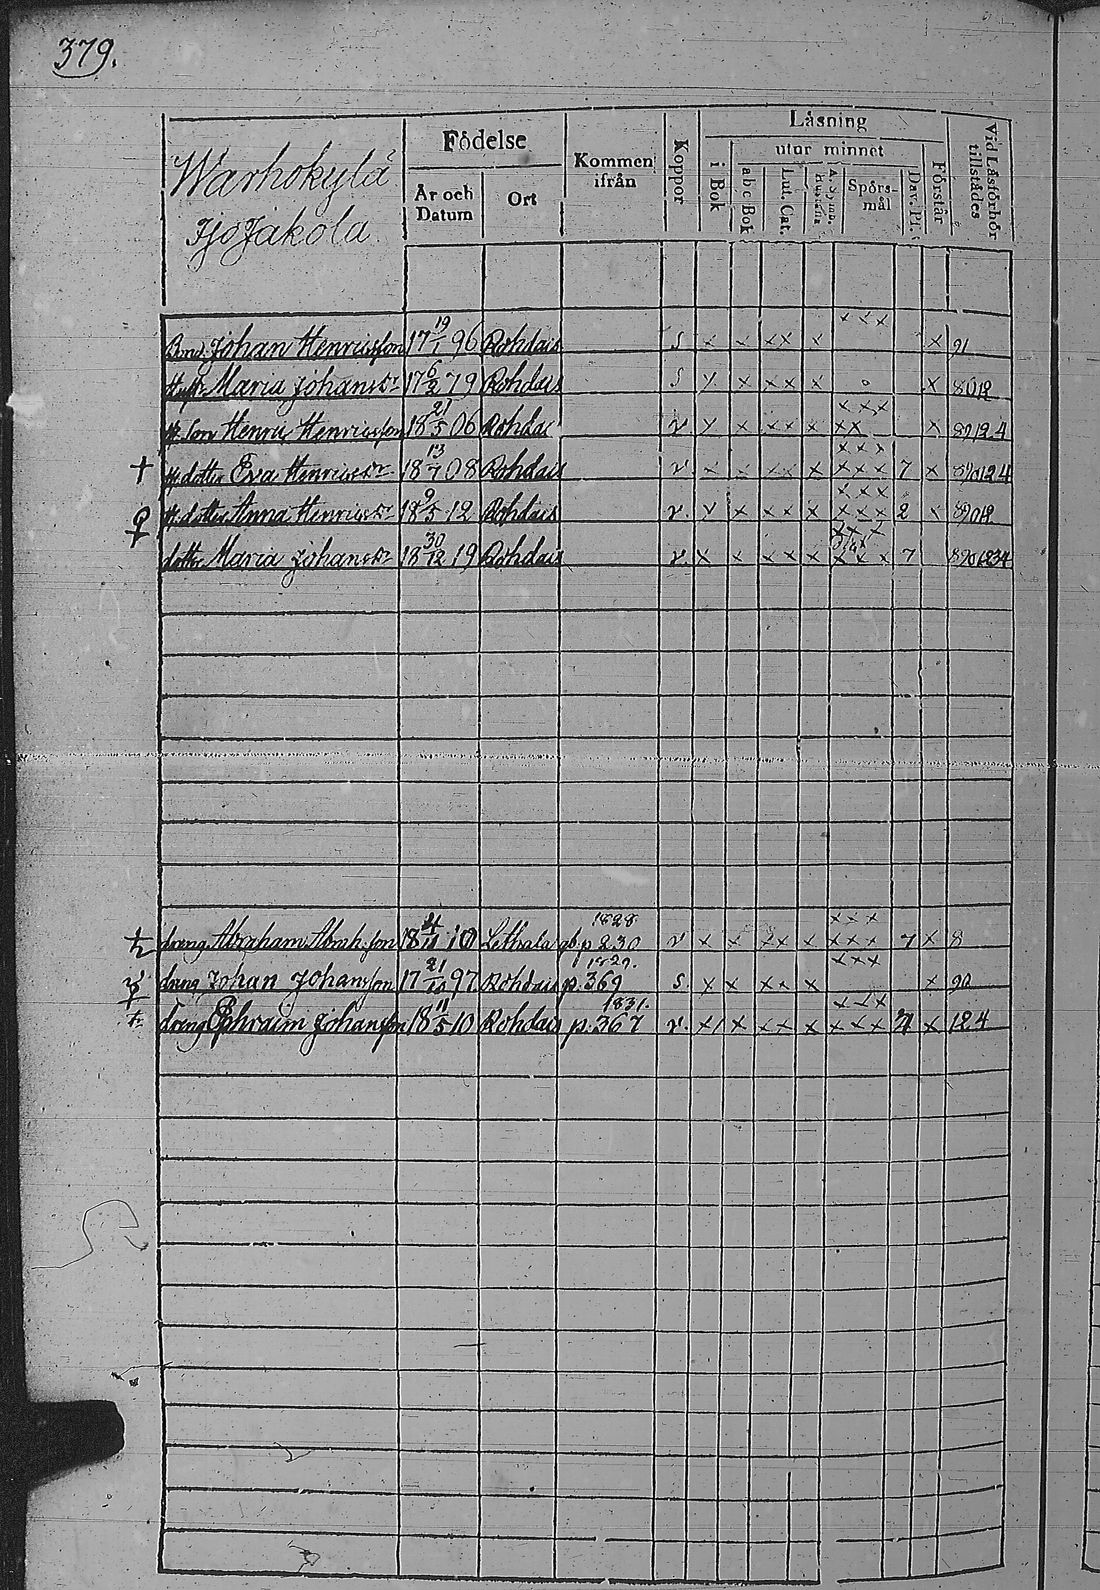 379.
Warhokylä
Isojakola
Födelse
År och Datum
Ort
Kommen ifrån
Koppor
Läsning
i Bok
utur minnet
abc Bok
Lut. Cat.
Spörsmål
Dav. Ps.
Förstår
Vid Läsförhör tillstädes
Johan Henricsson 17 19/1 96 Rohdais s x x xx x xxx x 91
Maria Johansdr 17 6/2 79 Rohdais s x x xx x o x 8012
son Henric Henricsson 18 21/5 06 Rohdais v x x xx x xxx xx x 890124
† dotter Eva Henricsdr 18 13/7 08 Rohdais v x x xx x xxx xxx 7 x 890124
♀ dotter Anna Henricsdr 18 9/5 12 Rohdais v. x x xx x xxx xxx 2 x 89012
dotter Maria Johansdr 18 30/12 19 Rohdais v x x xx x xxx xxx 7 8901234
dreng Abraham Abrah.son 18 10 Lethala 1828 p. 230 v x x xx x xxx xxx 7 x 8
dreng Johan Johansson 17 21/10 97 Rohdais 1829. p. 369 s. x x xx x xxx x 90
dreng Ephraim Johansson 18 11/5 10 Rohdais 1831. p. 367 v. x x xx x xxx xxx 7 x 124